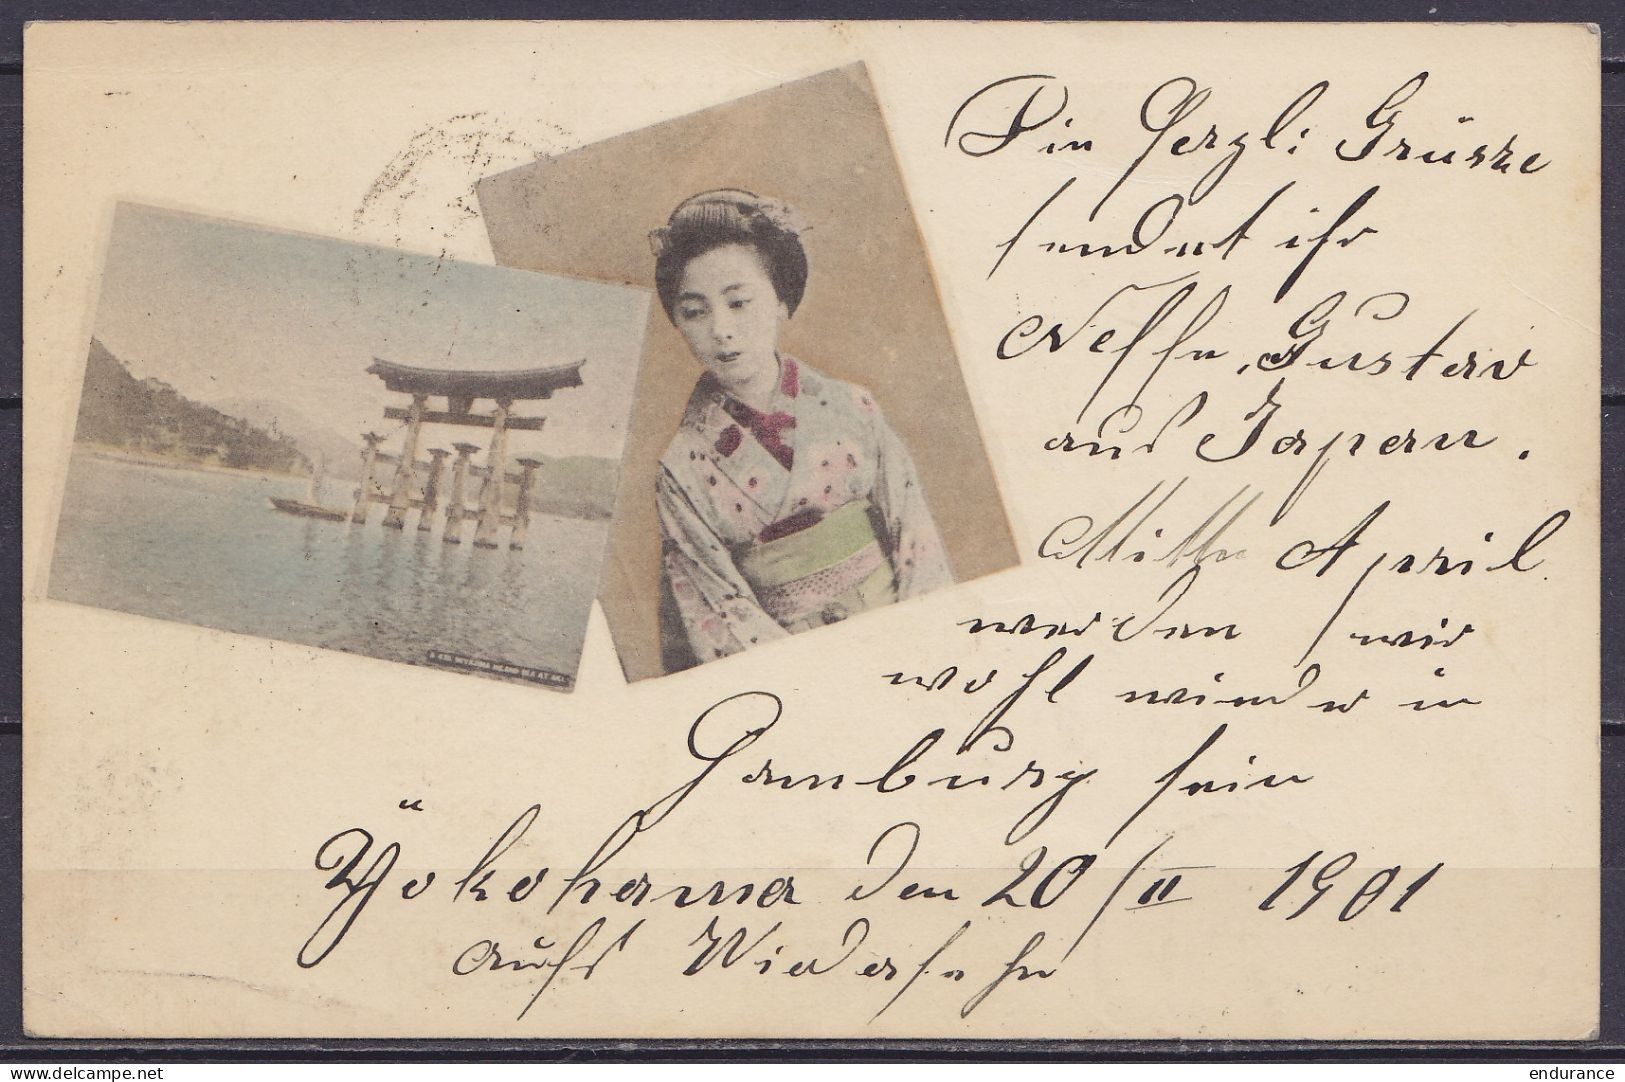 Die Herzl: Grüsse
sendet ihr
Neffe, Gustav
aus Japan.
Mitte April
werden wir
wohl wieder in
Hamburg sein
Yokohama den 20/II 1901
aufs Wiedersehn
MIYAJIMA ISLAND SEA AT AKI.
delcampe.net
endurance